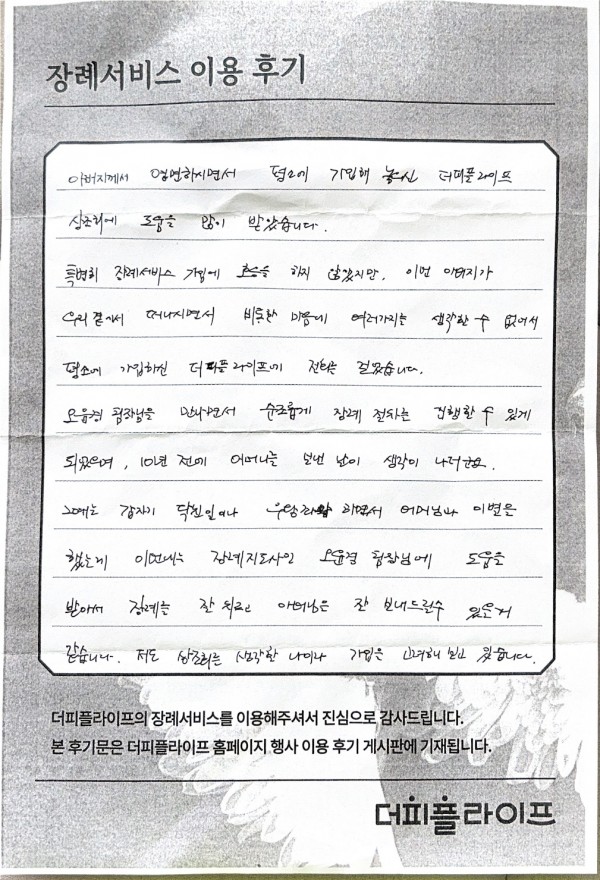 장례서비스 이용 후기
아버지께서 영면하시면서 평소에 가입해 놓신 더피플라이프
상조회에 도움을 많이 받았습니다.
특별히 장례서비스 가입에 호응을 하지 않았지만, 이번 아버지가
우리 곁에서 떠나시면서 비통한 마음에 여러가지를 생각할 수 없어서
평소에 가입하신 더피플라이프에 전화를 걸었습니다.
오윤경 팀장님을 만나면서 순조롭게 장례 절차를 진행할 수 있게
되었으며, 10년 전에 어머니를 보낸 날이 생각이 나더군요.
그때는 갑자기 닥친일이라 우왕좌왕 하면서 어머님과 이별을
했는데 이번에는 장례지도사인 오윤경 팀장님에 도움을
받아서 장례를 잘 치르고 아버님을 잘 보내드릴수 있은거
같습니다. 저도 상조회를 생각할 나이라 가입을 고려해 보고 있습니다.
더피플라이프의 장례서비스를 이용해주셔서 진심으로 감사드립니다.
본 후기문은 더피플라이프 홈페이지 행사 이용 후기 게시판에 기재됩니다.
더피플라이프